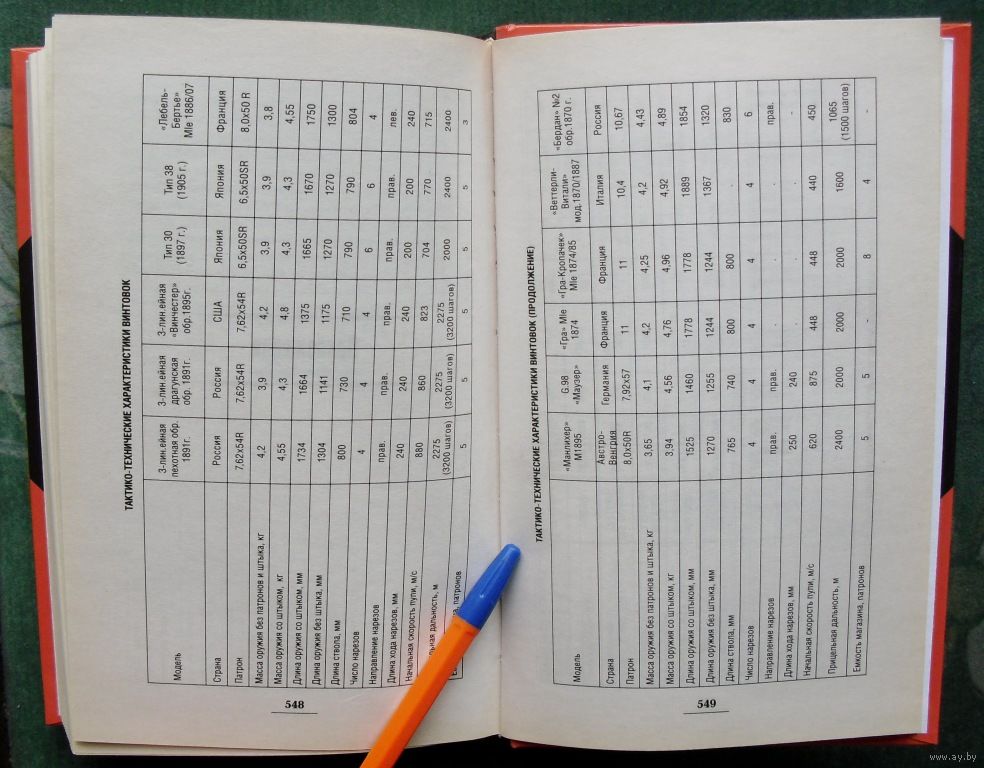 ТАКТИКО-ТЕХНИЧЕСКИЕ ХАРАКТЕРИСТИКИ ВИНТОВОК
Модель 3-лин.ейная пехотная обр. 1891г. 3-лин.ейная драгунская обр. 1891г. 3-лин.ейная «Винчестер» обр.1895г. Тип 30 (1897 г.) Тип 38 (1905 г.) «Лебель-Бертье» Mle 1886/07
Страна Россия Россия США Япония Япония Франция
Патрон 7,62x54R 7,62x54R 7,62x54R 6,5x50SR 6,5x50SR 8,0x50 R
Масса оружия без патронов и штыка, кг 4,2 3,9 4,2 3,9 3,9 3,8
Масса оружия со штыком, кг 4,55 4,3 4,8 4,3 4,3 4,55
Длина оружия со штыком, мм 1734 1664 1375 1665 1670 1750
Длина оружия без штыка, мм 1304 1141 1175 1270 1270 1300
Длина ствола, мм 800 730 710 790 790 804
Число нарезов 4 4 4 6 6 4
Направление нарезов прав. прав. прав. прав. прав. лев.
Длина хода нарезов, мм 240 240 240 200 200 240
Начальная скорость пули, м/с 880 860 823 704 770 715
льная дальность, м 2275 (3200 шагов) 2275 (3200 шагов) 2275 (3200 шагов) 2000 2400 2400
Ем а, патронов 5 5 5 5 5 3
548
ТАКТИКО-ТЕХНИЧЕСКИЕ ХАРАКТЕРИСТИКИ ВИНТОВОК (ПРОДОЛЖЕНИЕ)
Модель «Манлихер» М1895 G.98 «Маузер» «Гра» Mle 1874 «Гра-Кропачек» Mle 1874/85 «Веттерли-Витали» мод.1870/1887 «Бердан» №2 обр.1870 г.
Страна Австро-Венгрия Германия Франция Франция Италия Россия
Патрон 8,0x50R 7,92x57 11 11 10,4 10,67
Масса оружия без патронов и штыка, кг 3,65 4,1 4,2 4,25 4,2 4,43
Масса оружия со штыком, кг 3,94 4,56 4,76 4,96 4,92 4,89
Длина оружия со штыком, мм 1525 1460 1778 1778 1889 1854
Длина оружия без штыка, мм 1270 1255 1244 1244 1367 1320
Длина ствола, мм 765 740 800 800 - 830
Число нарезов 4 4 4 4 4 6
Направление нарезов прав. прав. - - - прав.
Длина хода нарезов, мм 250 240 - - - -
Начальная скорость пули, м/с 620 875 448 448 440 450
Прицельная дальность, м 2400 2000 2000 2000 1600 1065 (1500 шагов)
Емкость магазина, патронов 5 5 - 8 4 -
549
www.ay.by